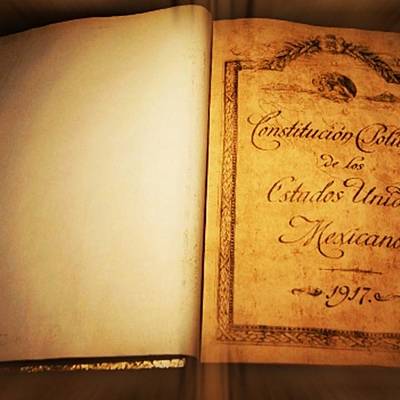 Constitución
de los
Estados
Mexicano
1917.